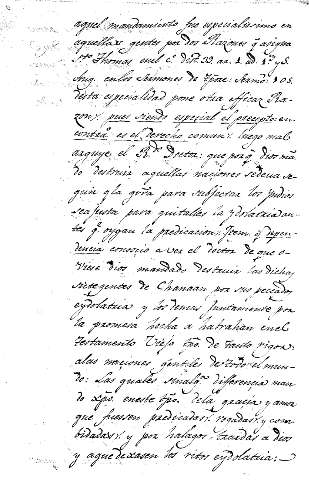 aquel mandamiento fue especialissimo en
aquellas gentes por dos Razones q̃ asigna
Sto Thomas en el 4. dist. 39. ar. 1. ad 1. y S.
Aug. en los Sermones de Sermo. 108.
desta especialidad pone otra efficaz Ra-
zon: pues siendo especial el precepto: en-
contrã es el derecho comun: luego mal
arguye el R. Doctor: que porq̃ Dios mã
do destruir aquellas naciones se deua se-
guir q̃ la guerra para subjectar los Yndios
sea justa para quitalles la ydolatria an-
tes q̃ oygan la predicacion: Ytem q̃ depen-
dencia conoscio a ver el doctor de que o-
viese dios mandado destruir las dichas
siete gentes de Chanaan por sus peccados
e ydolatria y los demas juntamente por
la promesa hecha a habrahan en el
testamento Viejo fue de tanto rigor
a las naciones gentiles de todo el mun-
do: Las quales sin differencia man-
do Xpo. en este tpo. de la gracia y amor
que fuesen predicadas: rogadas: y com-
bidadas: y por halagos traidas a dios
y a que dexasen los ritos e ydolatria: